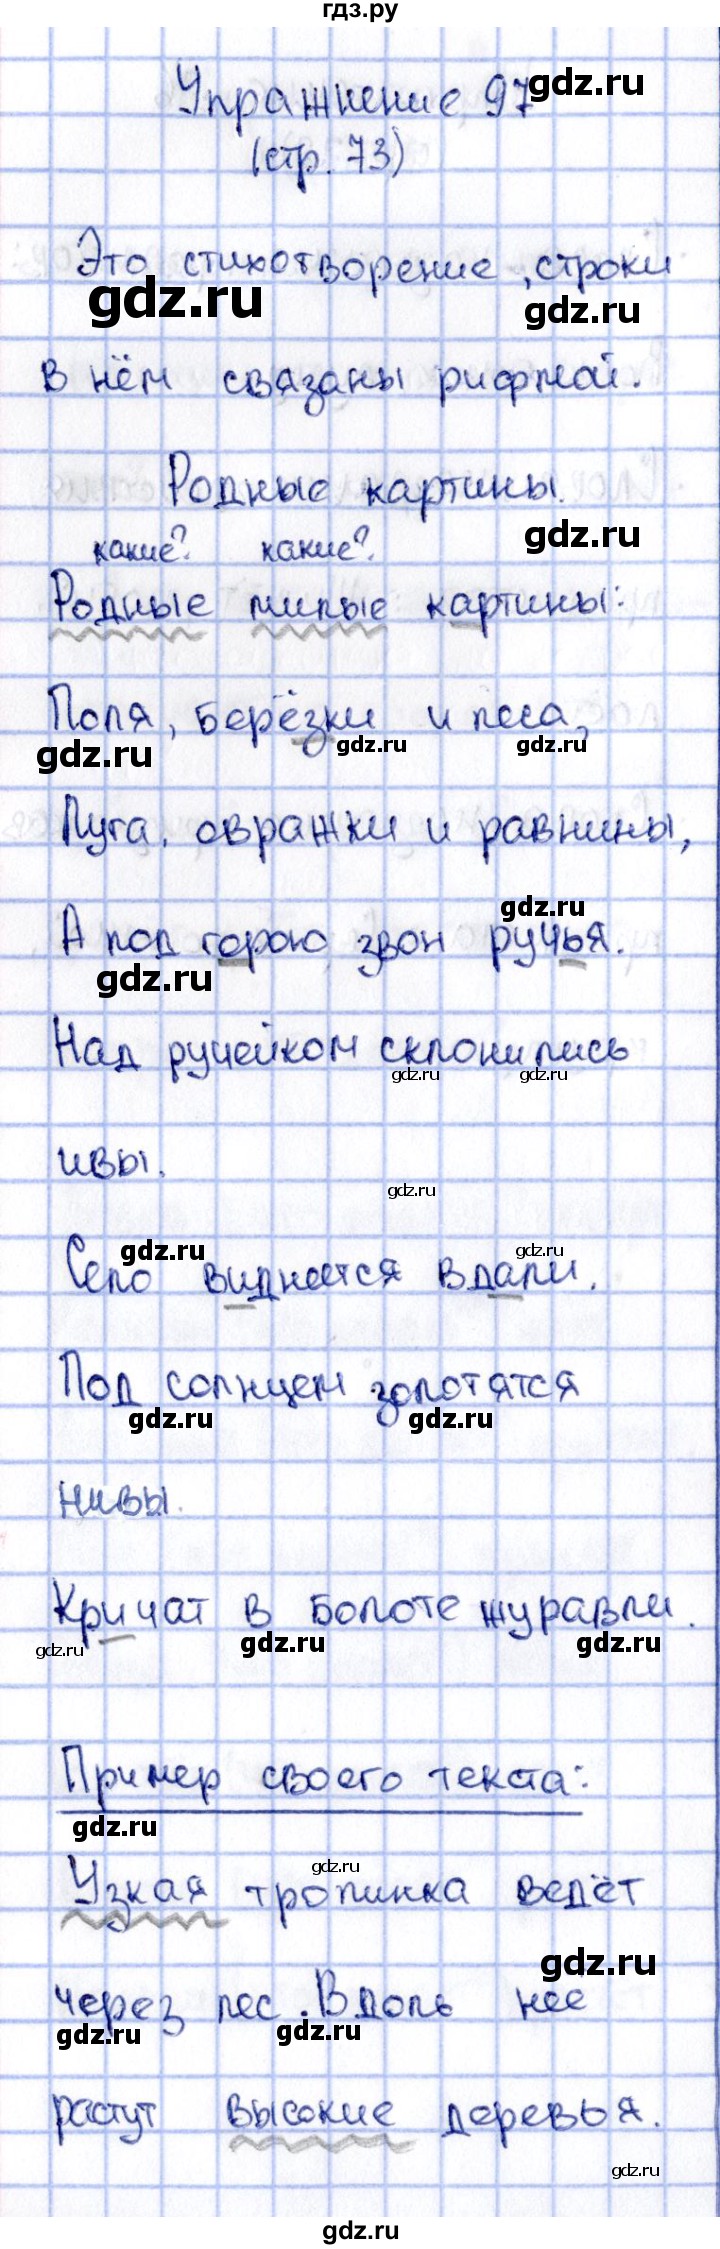 гдз.ру
Упражнение 97
gdz.ru
(стр. 73)
Это стихотворение, строки
gdz.ru
gdz.ru
в нём связаны рифмой.
Родные картины.
gdz.ru
какие? какие?
Родные милые картины:
Поля, берёзки и леса,
gdz.ru
gdz.ru
gdz.ru
Луга, овражки и равнины,
gdz.ru
А под горою звон ручья.
gdz.ru
Над ручейком склонились
gdz.ru
gdz.ru
ивы.
gdz.ru
gdz.ru
gdz.ru
Село виднеется вдали.
Под солнцем золотятся
gdz.ru
gdz.ru
нивы.
Кричат в болоте журавли.
gdz.ru
gdz.ru
gdz.ru
Пример своего текста:
gdz.ru
gdz.ru
Узкая тропинка ведёт
gdz.ru
через лес. Вдоль неё
gdz.ru
gdz.ru
растут высокие деревья.
gdz.ru
gdz.ru